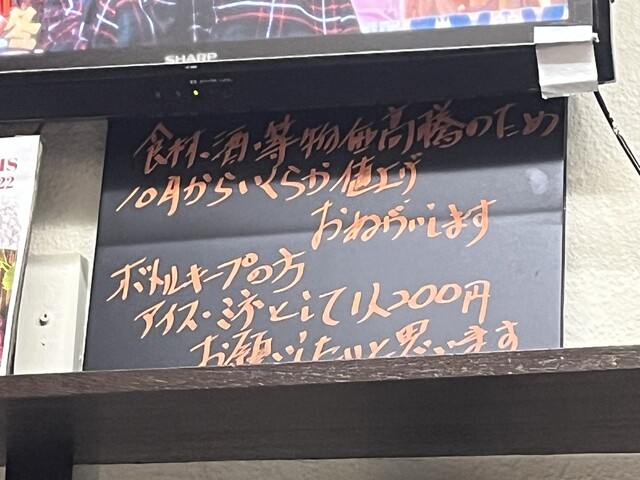 SHARP
食材、酒、等物価高騰のため
10月からいくらか値上げ
おねがいします
ボトルキープの方
アイス・水として1人200円
お願いしたいと思います
22